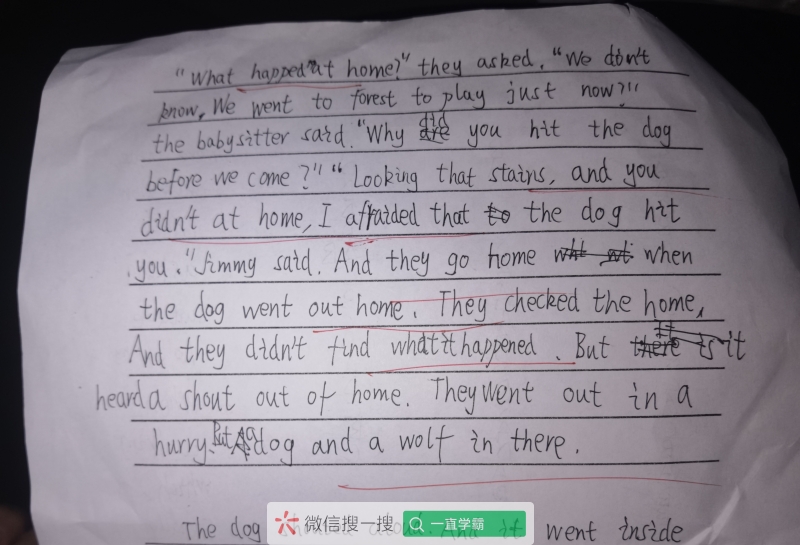 "What happed at home?" they asked. "We don't
know, We went to forest to play just now?"
the babysitter said. "Why did you hit the dog
before we come?" "Looking that stains, and you
didn't at home, I affraided that the dog hit
you." Jimmy said. And they go home when
the dog went out home. They checked the home,
And they didn't find what it happened. But it
heard a shout out of home. They went out in a
hurry. But a dog and a wolf in there.
The dog And it went inside
微信搜一搜 一直学霸